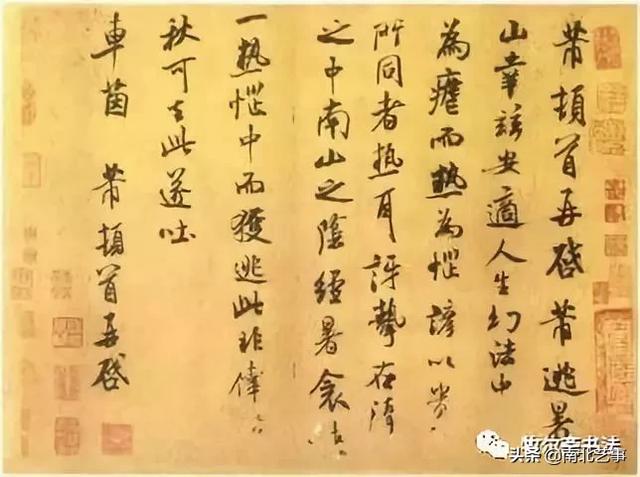 芾頓首再啓芾逃暑
山幸兹安適人生幻法中
為瘧而熱為惱諺以貴
所同者熱耳訝摯在清
之中南山之陰經暑衾
一熱惱中而獲逃此非倖
秋可去此遂吐
車茵 芾頓首再啓
书法
头条 @南北艺事